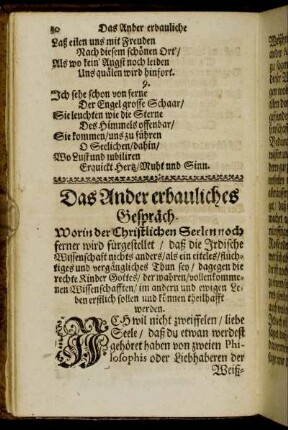 80 Das Ander erbauliche
Laß eilen uns mit Freuden
Nach diesem schönen Ort/
Als wo kein' Angst noch leiden
Uns quälen wird hinfort.
9.
Ich sehe schon von ferne
Der Engel grosse Schaar/
Sie leuchten wie die Sterne
Des Himmels offenbar/
Sie kommen/uns zu führen
O Seelichen/dahin/
Wo Lust und jubiliren
Erquickt Hertz/Muht und Sinn.
Das Ander erbauliches
Gespräch.
Worin der Christlichen Seelen noch
ferner wird fürgestellet / daß die Irdische
Wissenschaft nichts anders/als ein eiteles/flüch-
tiges und vergängliches Thun sey / dagegen die
rechte Kinder Gottes/ der wahren/vollenkomme-
nen Wissenschafften/ im andern und ewigen Le-
ben erstlich sollen und können theilhafft
werden.
ICH wil nicht zweiffelen/ liebe
Seele/ daß du etwan werdest
gehöret haben von zweien Phi-
losophis oder Liebhaberen der
Weiß-